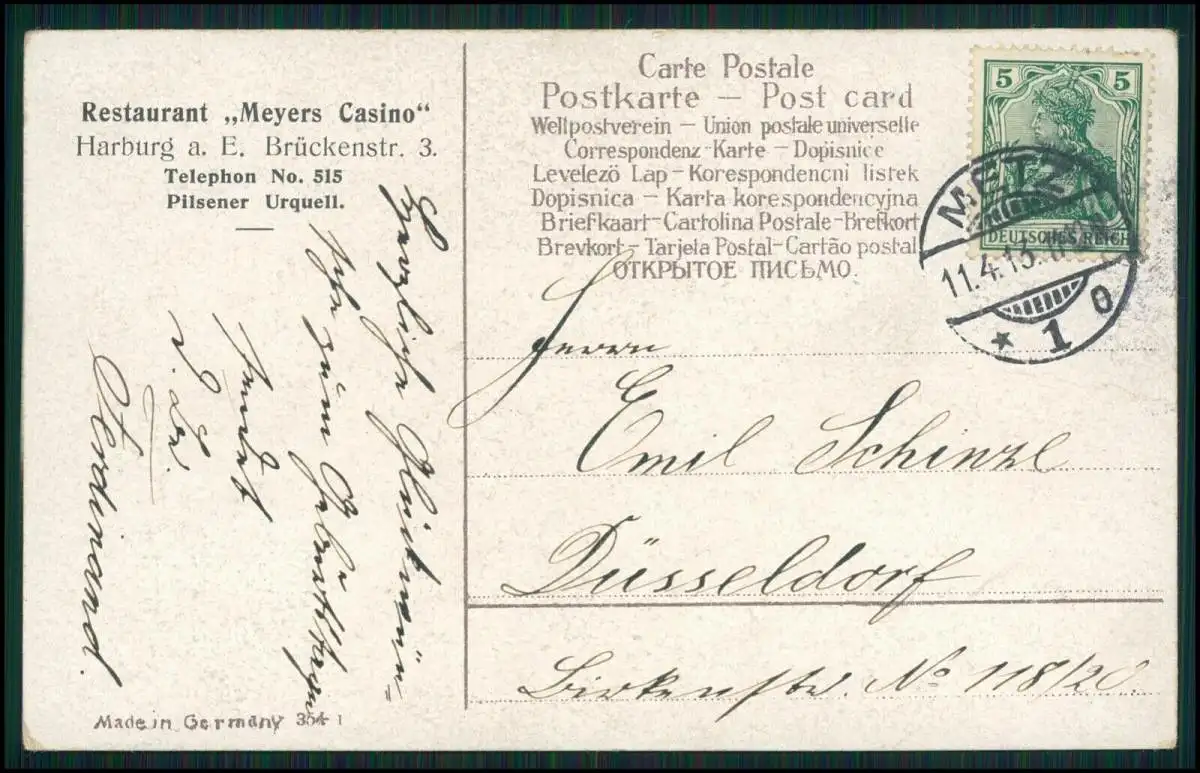 Restaurant „Meyers Casino“
Harburg a. E. Brückenstr. 3.
Telephon No. 515
Pilsener Urquell.
Herzliche Glückwün=
sche zum Geburtstage
sendet
Ferdinand.
Made in Germany 354 1
Carte Postale
Postkarte — Post card
Weltpostverein — Union postale universelle
Correspondenz-Karte — Dopisnice
Levelező Lap — Korespondencni listek
Dopisnica — Karta korespondencyjna
Briefkaart — Cartolina Postale — Brefkort
Brevkort — Tarjeta Postal — Cartão postal
ОТКРЫТОЕ ПИСЬМО.
5 5
DEUTSCHES REICH
METZ
11.4.13.
* 1 o
Herrn
Emil Schinzl
Düsseldorf
Birkenstr. No 118/20.